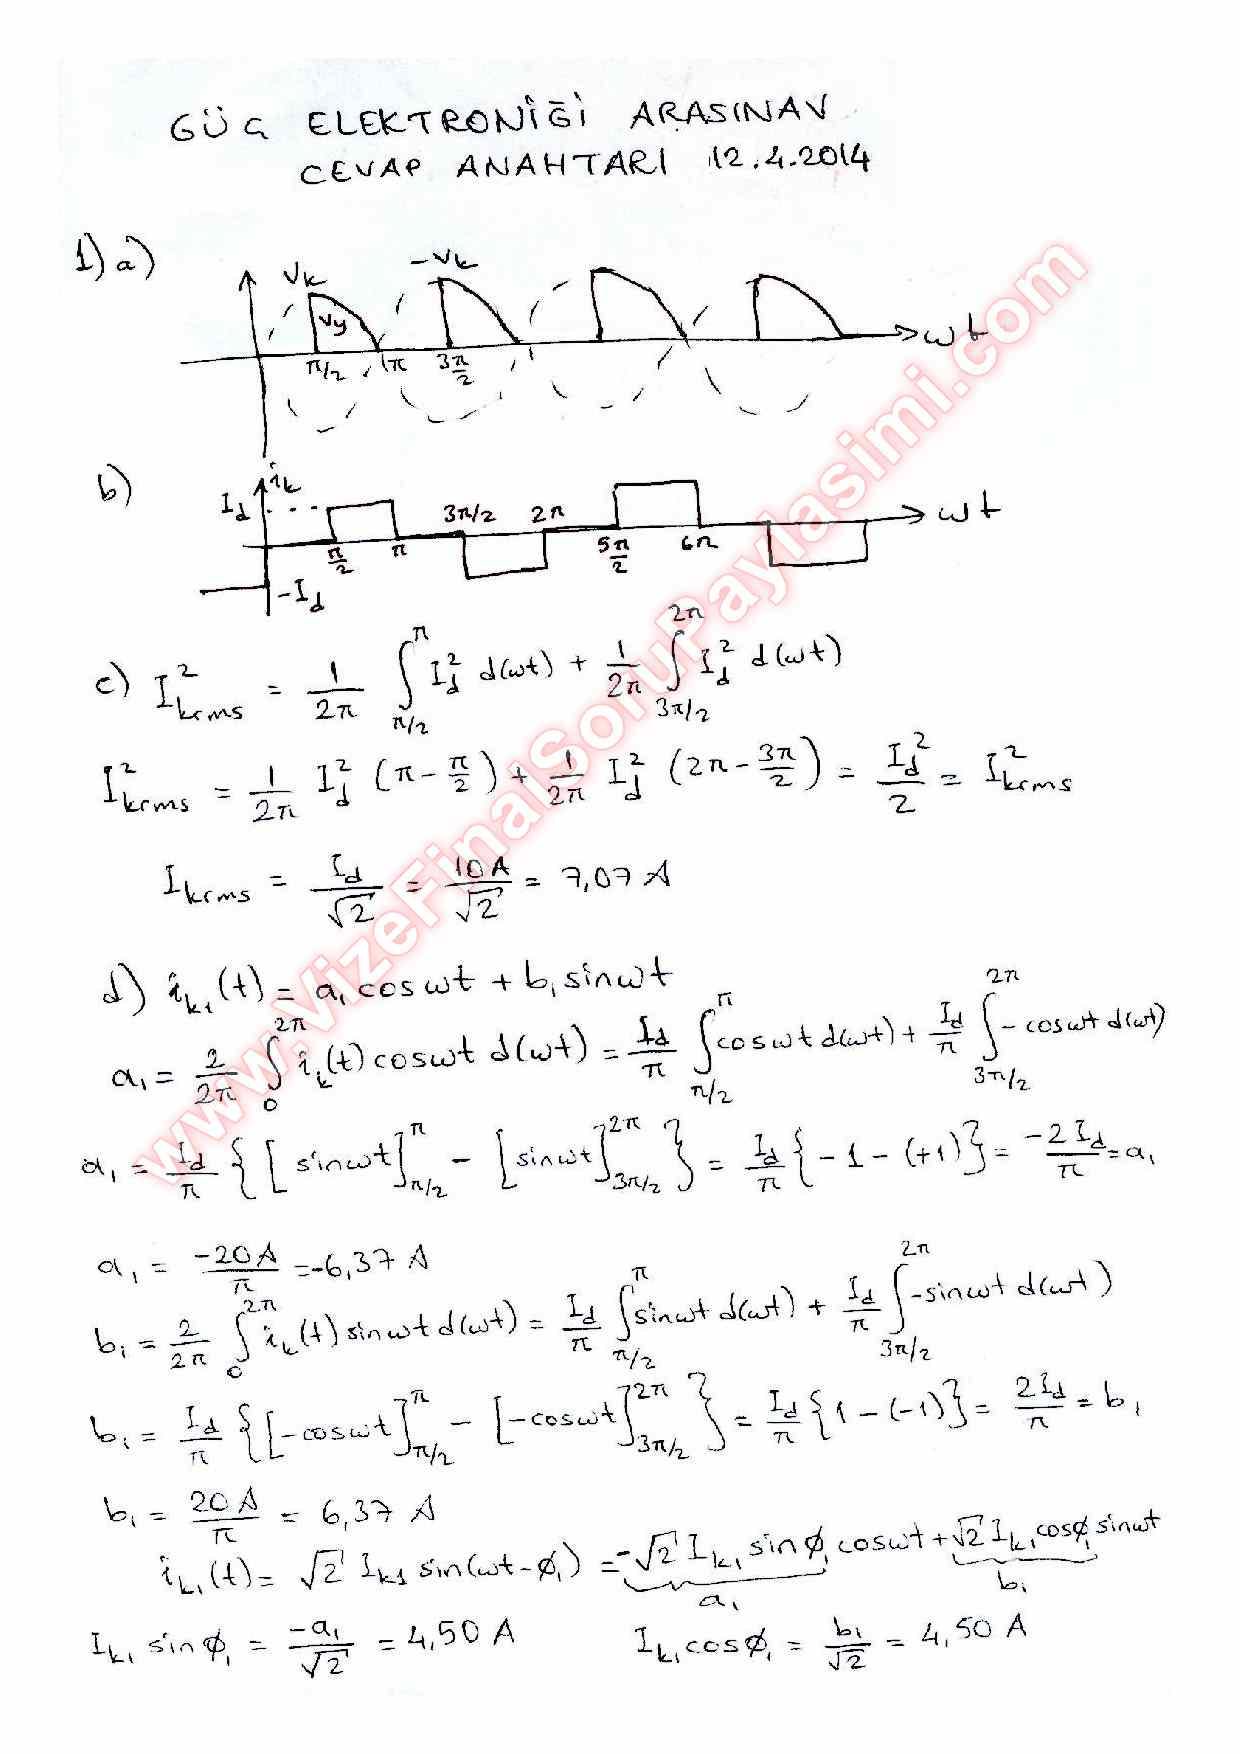 GÜÇ ELEKTRONİĞİ ARASINAV
CEVAP ANAHTARI 12.4.2014
1) a)
Vk -Vk
Vy
ωt
π/2 π 3π/2
b)
ik
Id 3π/2 2π ωt
π/2 π 5π/2 6π
-Id
c) I²krms = 1/2π ∫_{π/2}^{π} I²d d(ωt) + 1/2π ∫_{3π/2}^{2π} I²d d(ωt)
I²krms = 1/2π I²d (π - π/2) + 1/2π I²d (2π - 3π/2) = I²d/2 = I²krms
Ikrms = Id/√2 = 10A/√2 = 7,07 A
d) ik1(t) = a1 cosωt + b1 sinωt
a1 = 2/2π ∫_{0}^{2π} ik(t) cosωt d(ωt) = Id/π ∫_{π/2}^{π} cosωt d(ωt) + Id/π ∫_{3π/2}^{2π} -cosωt d(ωt)
a1 = Id/π { [sinωt]_{π/2}^{π} - [sinωt]_{3π/2}^{2π} } = Id/π { -1 - (+1) } = -2Id/π = a1
a1 = -20A/π = -6,37 A
b1 = 2/2π ∫_{0}^{2π} ik(t) sinωt d(ωt) = Id/π ∫_{π/2}^{π} sinωt d(ωt) + Id/π ∫_{3π/2}^{2π} -sinωt d(ωt)
b1 = Id/π { [-cosωt]_{π/2}^{π} - [-cosωt]_{3π/2}^{2π} } = Id/π { 1 - (-1) } = 2Id/π = b1
b1 = 20A/π = 6,37 A
ik1(t) = √2 Ik1 sin(ωt-φ1) = -√2 Ik1 sinφ1 cosωt + √2 Ik1 cosφ1 sinωt
a1 b1
Ik1 sinφ1 = -a1/√2 = 4,50 A Ik1 cosφ1 = b1/√2 = 4,50 A
www.VizeFinalSoruPaylasimi.com